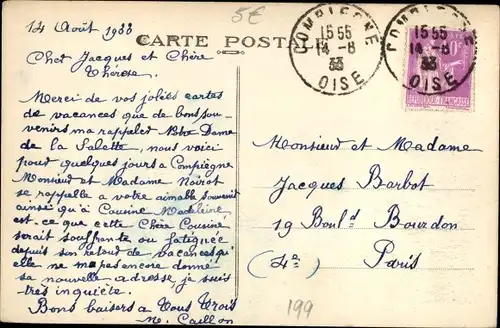 14 Août 1933
5€
CARTE POSTALE
COMPIEGNE
1555
14-8
33
OISE
COMPIEGNE
1555
14-8
33
OISE
REPUBLIQUE FRANÇAISE
Cher Jacques et Chère
Thérèse.
Merci de vos jolies cartes
de vacances que de bons sou-
venirs m'a rappeler Notre Dame
de la Salette, nous voici
pour quelques jours a Compiègne
Monsieur et Madame Noirot
se rappelle a votre aimable souvenir
ainsi qu'à Cousine Madeleine
est-ce que cette Chère Cousine
serait souffrante ou fatiguée
depuis son retour de vacances qu'
elle ne m'a pas encore donné
sa nouvelle adresse, je suis
très inquiète.
Bons baisers a Vous Trois
M. Caillon
Monsieur et Madame
Jacques Barbot
19 Boul.d Bourdon
(4e) Paris
199